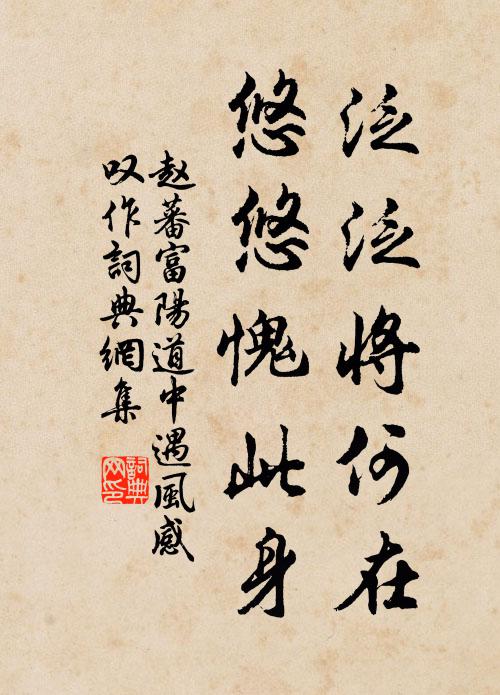 泛泛将何在
悠悠愧此身
赵蕃富陽道中遇風感
叹作詞典網集
詞典網印